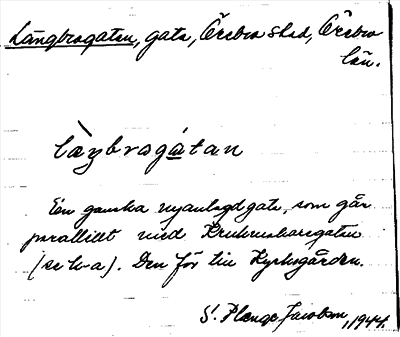 Långbrogatan, gata, Örebro stad, Örebro
län.
làŋbrogátan
En ganska nyanlagd gata, som går
parallellt med Krukmakaregatan
(se h-a). Den för till Kyrkogården.
S. Plenge Jacobson, 1944.